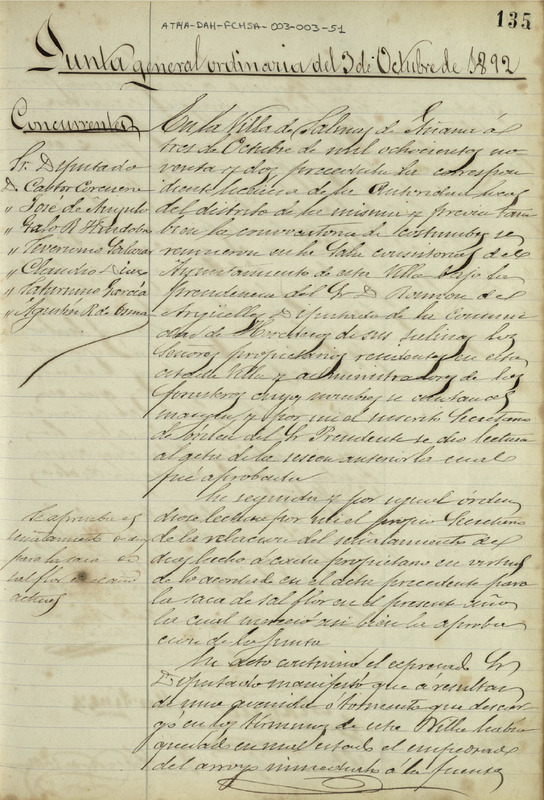 ATHA-DAH-FCMSA-003-003-51
135
Junta general ordinaria del 3 de Octubre de 1892
Concurrentes
Sr. Diputado
D. Castor Corcuera
" José de Angulo
" Galo R. Hurdobro
" Geronimo Salazar
" Claudio
" Saturnino García
" Agustín R. de
En la Villa de Salinas de Añana á
tres de Octubre de mil ochocientos no-
venta y dos, precedida la correspon
diente licencia de la Autoridad local
del distrito de la misma y previa tam
bien la convocatoria de costumbre, se
reunieron en la Sala consistorial del
Ayuntamiento de esta Villa bajo la
presidencia del Sr. D. Ramon de
Arguelles, Diputado de la Comuni
dad de Herederos de sus salinas los
Señores propietarios residentes en esta
Villa y administradores de los
forasteros cuyos nombres se constan al
margen, y por mi el infrascrito Secretario
de órden del Sr. Presidente se dio lectura
al acta de la sesion anterior la cual
fué aprobada.
Se aprueba el
señalamiento
para la saca de
sal flor en el año
actual
En seguida y por igual orden
diose lectura por mi el propio Secretario
de la relacion del señalamiento de
hecho á cada propietario en virtud
de lo acordado en el acta precedente para
la saca de sal flor en el presente año
la cual mereció asi bien la aproba
cion de la Junta.
En acto continuo el expresado Sr.
Diputado manifestó que á resultas
de una avenida ó tormenta que descar
gó en los términos de esta Villa habia
quedado en mal estado el empedrado
del arroyo inmediato á la fuente